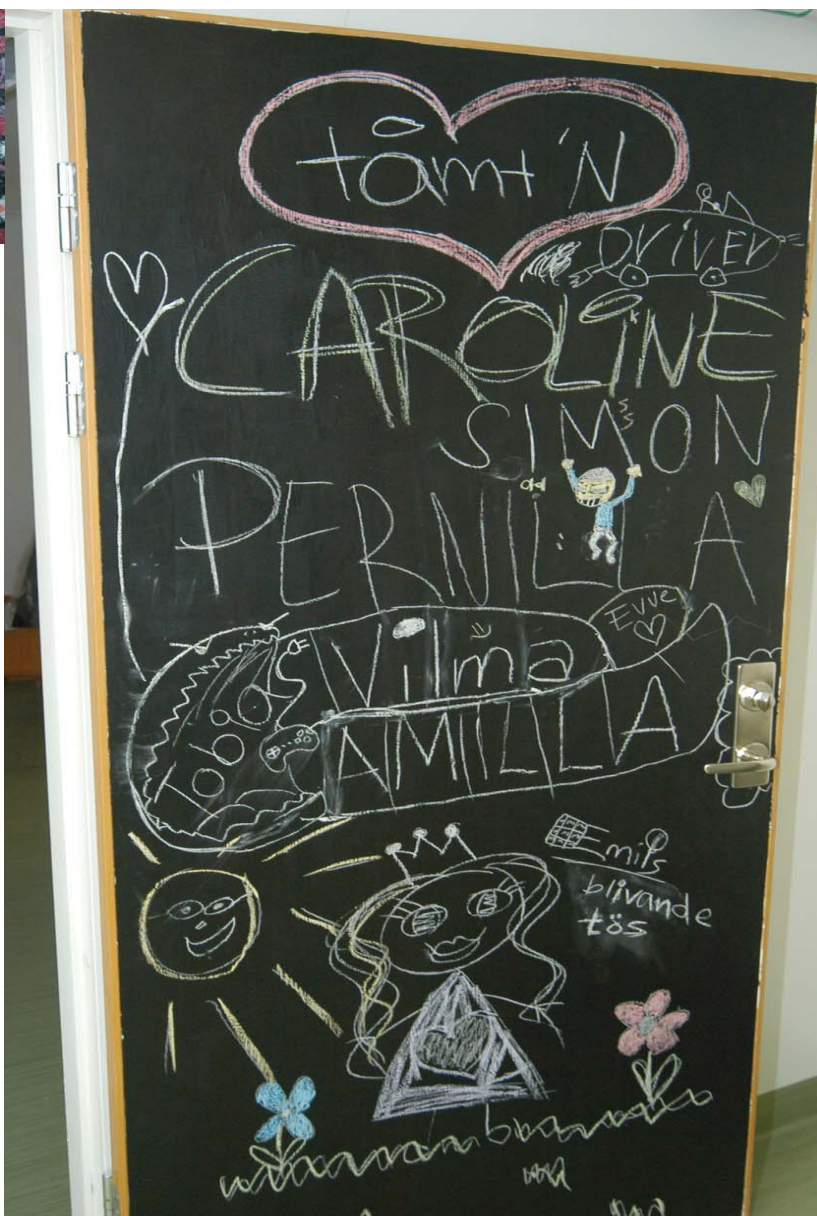 tåmt'N
Driver
CAROLINE
SIMON
PERNILLA
Evve
Vilma
AMILLA
Emils
blivande
tös